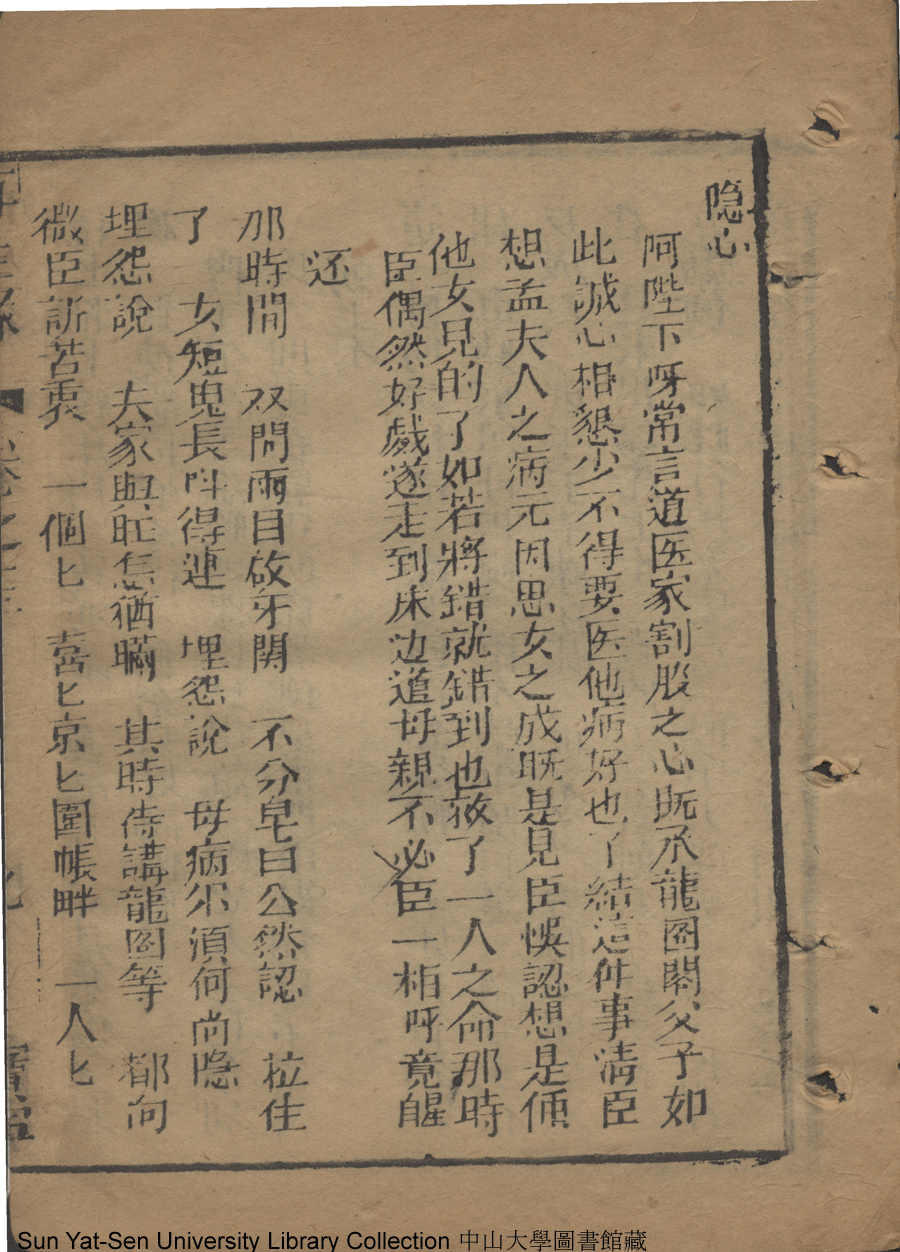 隐心
阿陛下呀常言道医家割股之心既承龍图閣父子如
此誠心相懇少不得要医他病好也了結這件事清臣
想孟夫人之病元因思女之成既是見臣悞認想是価
他女見的了如若將錯就錯到也救了一人之命那時
臣偶然好戲遂走到床边道母親不必臣一相呼竟醒
还
那時間 双開兩目啟牙關 不分皂白公然認 拉住
了 女短兒長呌得連 埋怨說 母病尔須何尚隐
埋怨說 夫家興旺怎猶瞞 其時侍講龍圖等 都向
微臣訴苦衷 一個匕 喜匕哀匕圍帳畔 一人匕
卷之十三
Sun Yat-Sen University Library Collection 中山大學圖書館藏